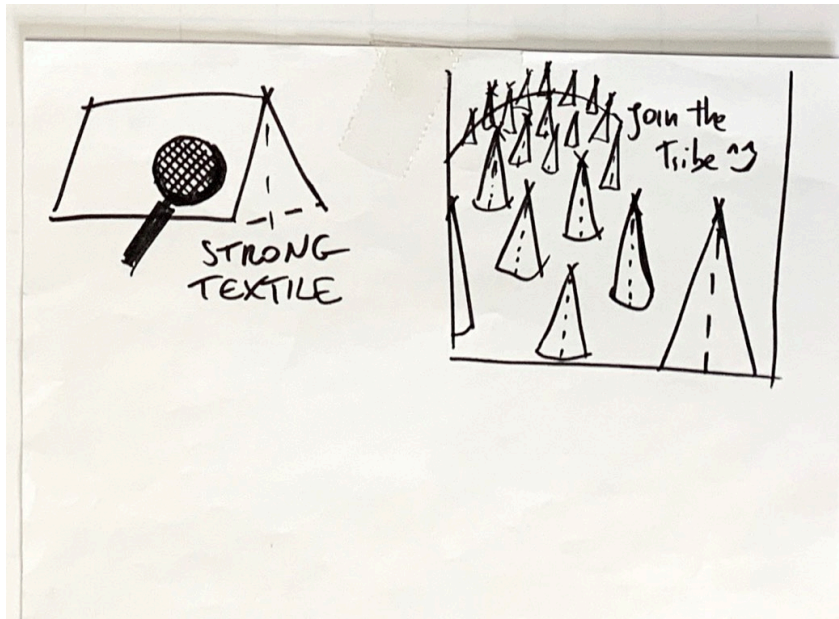 STRONG
TEXTILE
Join the
Tribe ^^